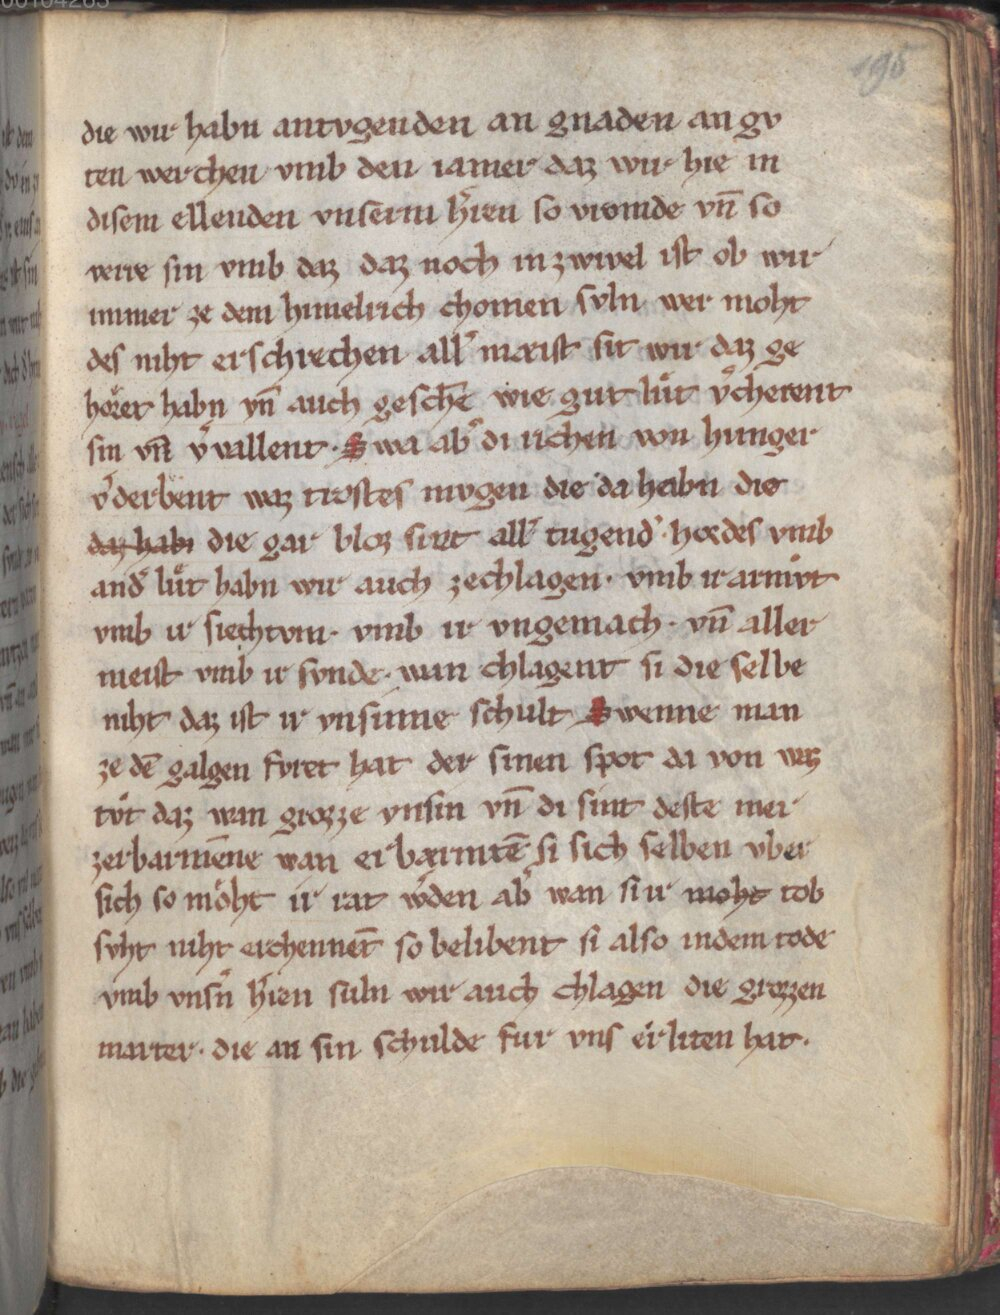 195
die wir habn antvgenden an gnaden an gv
ten werchen vmb den iamer daz wir hie in
disem ellenden vnserm h̾ren so vromde vn̄ so
verre sin vmb daz daz noch in zwivel ist ob wir
immer ze dem himelrich chomen svln wer moht
des niht erschrechen all̾ meist sit wir daz ge
hoͤret habn vn̄ auch gesch̄e wie gut luͤt v̾cherent
sin vn̄ v̾vallent. Swa ab̾ di richen von hunger
v̾derbent waz trostes mvgen die da habn die
daz habn die gar bloz sint all̾ tugend̾. hordes vmb
and̾ luͤt habn wir auch zechlagen. vmb ir armvͦt
vmb ir siechtvm. vmb ir vngemach. vn̄ aller
meist vmb ir svnde. wan chlagent si die selbe
niht daz ist ir vnsinne schult Swenne man
ze dē galgen fvret hat der sinen spot da von waz
tvͦt daz wan grozze vnsin vn̄ di sint deste mer
zerbarmēne wan erbarmtē si sich selben vber
sich so moͤht ir rat w̾den ab̾ wan si ir moht tob
svht niht erchennēt so belibent si also in dem tode
vmb vnsn̾ h̾ren suln wir auch chlagen die grozzen
marter. die an sin schulde fur vns erliten hat.